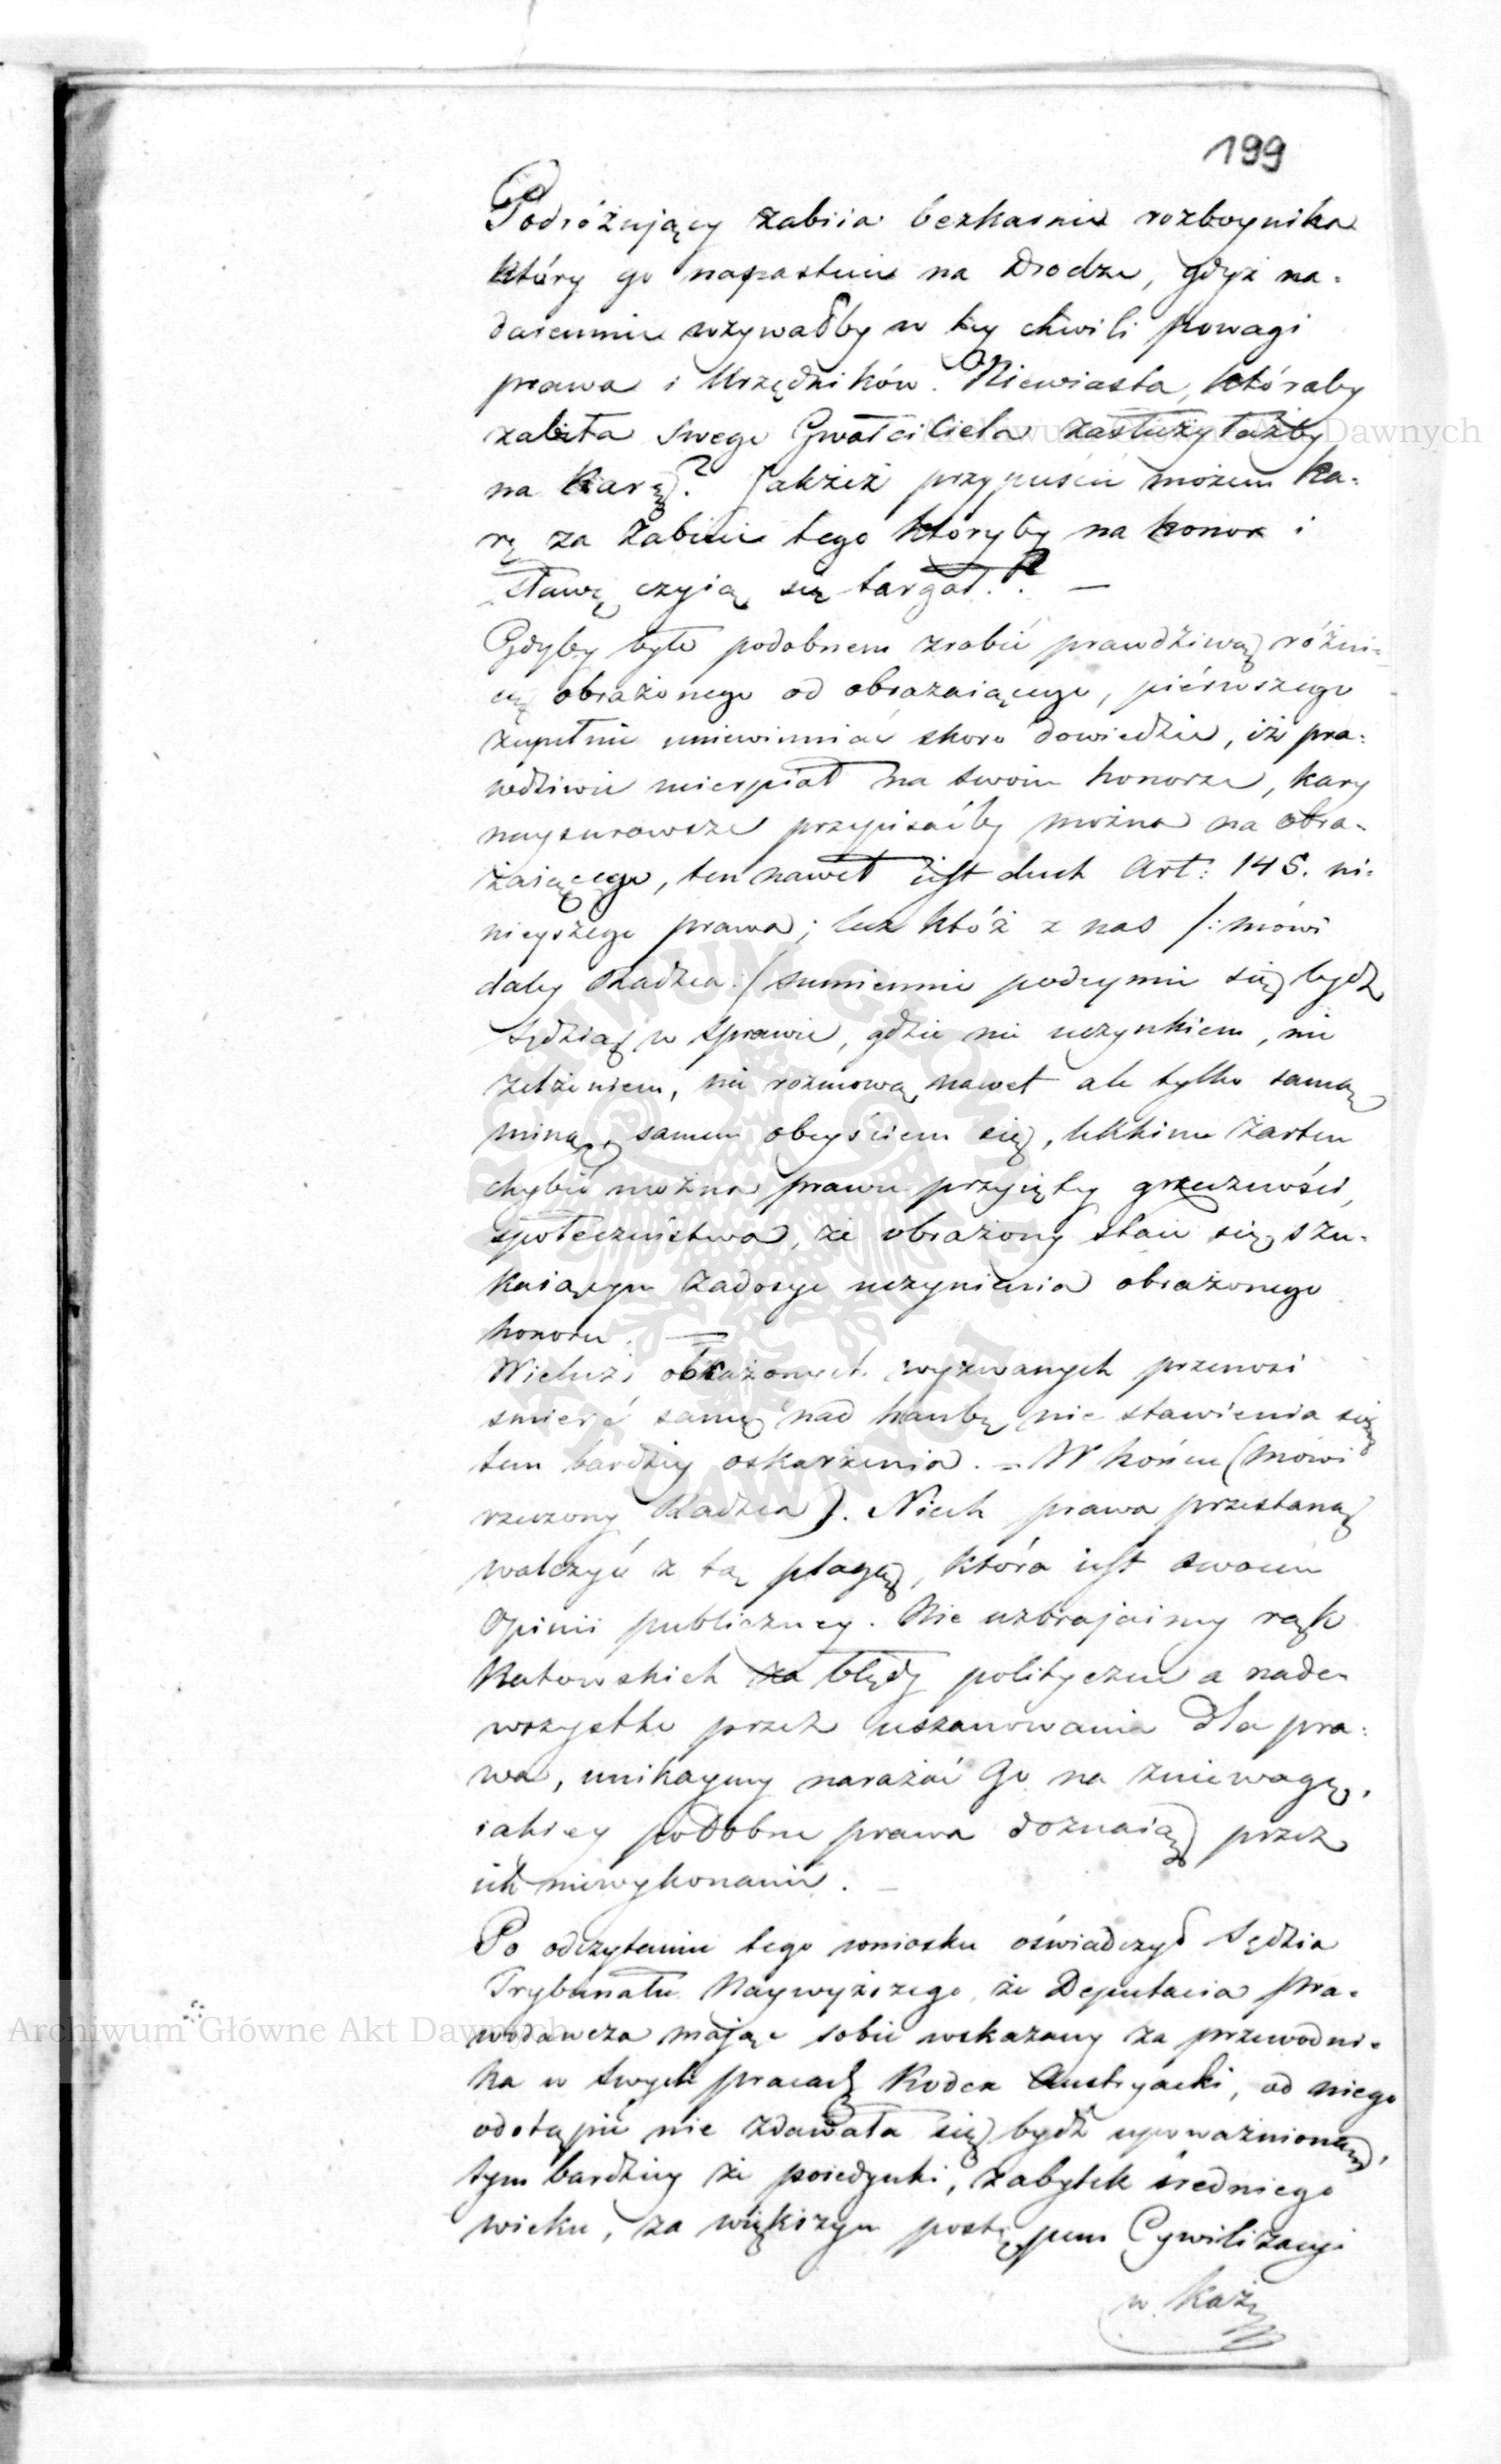 199
Podróżujący zabiia bezkarnie rozboynika
który go napastuie na drodze, gdyż na-
daremnie wzywałby w tey chwili powagi
prawa i Urzędników. Niewiasta, któraby
zabiła swego Gwałciciela zasłużyłażby
na karę? Jakżeż przypuścić możem ka-
rę za zabicie tego któryby na honor i
sławę czyią się targał.? —
Gdyby było podobnem zrobić prawdziwą różni-
cę obrażonego od obrażaiącego, pierwszego
zupełnie uniewinniać skoro dowiedzie, iż pra-
wdziwie ucierpiał na swoim honorze, kary
naysurowsze przepisaćby można na obra-
żaiącego, ten nawet iest duch Art: 145. ni-
nieyszego prawa; lecz któż z nas /: mówi
daley Radzca :/ sumiennie podeymie się bydź
sędzią w sprawie, gdzie nie uczynkiem, nie
zelżeniem, nie rozmową nawet ale tylko samą
miną, samem obeyściem się, lekkim żartem
chybić można prawu przyjętey grzeczności
społeczeństwa, że obrażony staie się szu-
kaiącym zadosyć uczynienia obrażonego
honoru. —
Wieluż obrażonych wyzwanych przenosi
śmierć samę nad hańbę nie stawienia się
tem bardziey oskarżenia. — W końcu (mówi
rzeczony Radzca). Niech prawa przestaną
walczyć z tą plagą, która iest owocem
Opinii publiczney. Nie uzbrajaimy rąk
Katowskich za błędy polityczne a nade-
wszystko przez uszanowanie dla pra-
wa, unikaymy narażać Go na zniewagę,
iakiey podobne prawa doznaią przez
ich niewykonanie. —
Po odczytaniu tego wniosku oświadczył Sędzia
Trybunału Naywyższego, że Deputacia pra-
wodawcza mając sobie wskazany za przewodni-
ka w swych pracach Kodex Austryacki, od niego
odstąpić nie zdawała się bydź upoważnioną,
tym bardziey że poiedynki, zabytek średniego
wieku, za większym postępem Cywilizacyi
w każ
Archiwum Główne Akt Dawnych
Archiwum Główne Akt Dawnych
ARCHIWUM GŁÓWNE AKT DAWNYCH